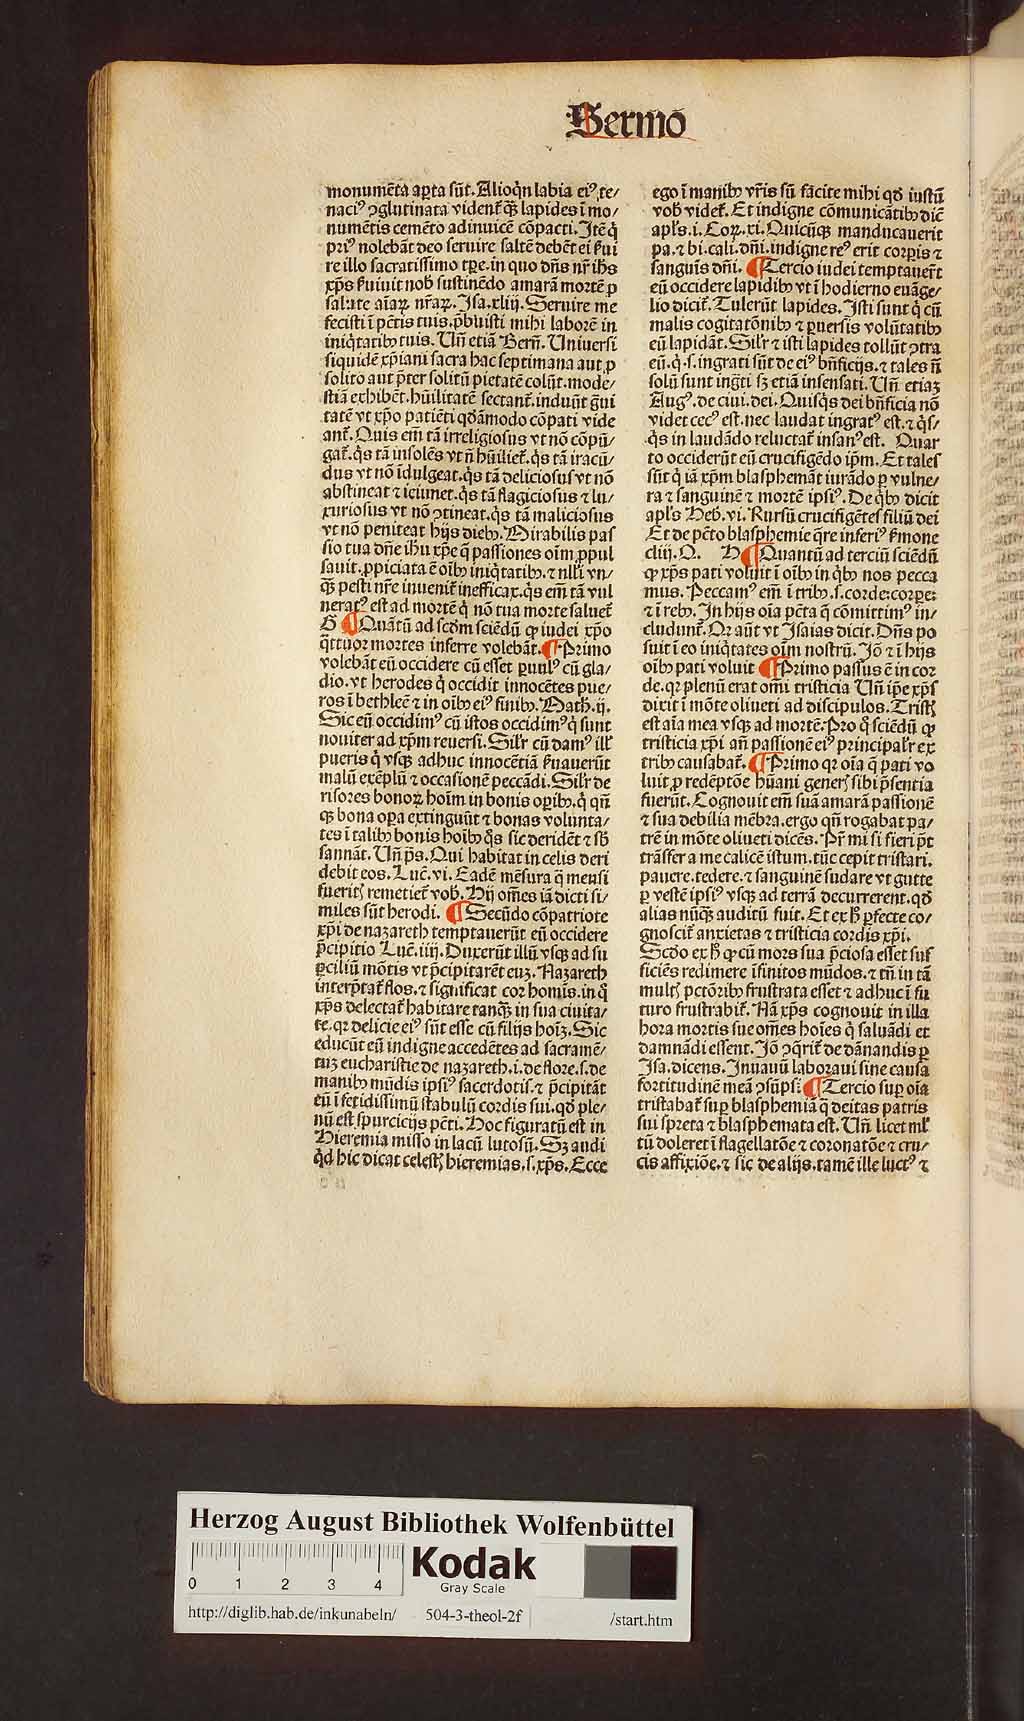 Sermo̅
monume̅ta aꝑta su̅t. Alioqͥn labia eiꝰ te/
naciꝰ ꝯglutinata vident᷑ qꝫ lapides i̅ mo/
nume̅tis ceme̅to adinuice̅ co̅pacti. Ite̅ qͥ
priꝰ noleba̅t deo seruire salte̅ debe̅t ei ẜui
re illo sacratissimo tꝑe. in quo dn̅s nr̅ ih̅s
xp̅s ẜuiuit nob̾ sustine̅do amara̅ morte̅ ꝓ
salute ai̅aꝝ nr̅aꝝ. Isa. xliij. Seruire me
fecisti i̅ pc̅tis tuis. p̅buisti mihi labore̅ in
iniqͥtatibꝫ tuis. Vn̅ etia̅ Bern̅. Vniuersi
siquide̅ xp̅iani sacra hac septimana aut ꝓ
solito aut p̅ter solitu̅ pietate̅ colu̅t. mode/
stia̅ exhibe̅t. hu̅ilitate̅ sectant᷑. induu̅t gͣui
tate̅ vt xp̅o patie̅ti qͦda̅modo co̅pati vide
ant᷑. Quis em̅ ta̅ irreligiosus vt no̅ co̅pu̅/
gat᷑. qͥs ta̅ insole̅s vt n̅ hu̅iliet᷑. qͥs ta̅ iracu̅/
dus vt no̅ i̅dulgeat. qͥs ta̅ deliciosus vt no̅
abstineat ⁊ ieiunet. qͥs ta̅ flagiciosus ⁊ lu/
xuriosus vt no̅ ꝯtineat. qͥs ta̅ maliciosus
vt no̅ peniteat hijs diebꝫ. Mirabilis pas
sio tua dn̅e ih̅u xp̅e q̅ passiones oi̅m ꝓpul
sauit. ꝓpiciata e̅ oi̅bꝫ iniqͥtatibꝫ. ⁊ nll̅i vn/
qꝫ pesti nr̅e inuenit᷑ inefficax. qͥs em̅ ta̅ vul
neratꝰ est ad morte̅ qͥ no̅ tua morte saluet᷑
G ¶ Qua̅tu̅ ad scd̅m scie̅du̅ ꝙ iudei xp̅o
qͣttuor mortes inferre voleba̅t. ¶ Primo
voleba̅t eu̅ occidere cu̅ esset ꝑuulꝰ cu̅ gla/
dio. vt herodes qͥ occidit innoce̅tes pue/
ros i̅ bethlee̅ ⁊ in oi̅bꝫ eiꝰ finibꝫ. Math. ij.
Sic eu̅ occidimꝰ cu̅ istos occidimꝰ qͥ sunt
nouiter ad xp̅m reuersi. Sil̅r cu̅ damꝰ ill̅
pueris qͥ vsqꝫ adhuc innoce̅tia̅ ẜuaueru̅t
malu̅ exe̅plu̅ ⁊ occasione̅ pecca̅di. Sil̅r de
risores bonoꝝ hoi̅m in bonis oꝑibꝫ. qͥ qn̅
qꝫ bona oꝑa extinguu̅t ⁊ bonas volunta/
tes i̅ talibꝫ bonis hoi̅bꝫ qͦs sic deride̅t ⁊ sb̾
sanna̅t. Vn̅ ps̅. Qui habitat in celis deri
debit eos. Luc̅. vi. Eade̅ me̅sura q̅ mensi
fueritꝭ remetiet᷑ vob̾. Hij om̅es ia̅ dicti si/
miles su̅t herodi. ¶ Secu̅do co̅patriote
xp̅i de nazareth temptaueru̅t eu̅ occidere
p̅cipitio Luc̅. iiij. Duxeru̅t illu̅ vsqꝫ ad su
ꝑciliu̅ mo̅tis vt p̅cipitare̅t euꝫ. Nazareth
interp̅tat᷑ flos. ⁊ significat cor homis. in qͦ
xp̅s delectat᷑ habitare tanqꝫ in sua ciuita/
te. qꝛ delicie eiꝰ su̅t esse cu̅ filijs hoi̅ꝫ. Sic
educu̅t eu̅ indigne accede̅tes ad sacrame̅/
tuꝫ eucharistie de nazareth. i. de flore. s. de
manibꝫ mu̅dis ipsiꝰ sacerdotis. ⁊ p̅cipita̅t
eu̅ i̅ fetidissimu̅ stabulu̅ cordis sui. qd̅ ple/
nu̅ est spurcicijs pc̅ti. Hoc figuratu̅ est in
Hieremia misso in lacu̅ lutosu̅. Sꝫ audi
qͥd hic dicat celestꝭ hieremias. s. xp̅s. Ecce
ego i̅ manibꝫ vr̅is su̅ facite mihi qd̅ iustu̅
vob̾ videt᷑. Et indigne co̅munica̅tibꝫ dic̅
apl̅s. i. Coꝝ. xi. Quicu̅qꝫ manducauerit
pa. ⁊ bi. cali. dn̅i. indigne reꝰ erit corꝑis ⁊
sanguis dn̅i. ¶ Tercio iudei temptauer̅t
eu̅ occidere lapidibꝫ vt i̅ hodierno eua̅ge/
lio dicit᷑. Tuleru̅t lapides. Isti sunt qͥ cu̅
malis cogitato̅nibꝫ ⁊ ꝑuersis volu̅tatibꝫ
eu̅ lapida̅t. Sil̅r ⁊ isti lapides tollu̅t ꝯtra
eu̅. qͥ. s. ingrati su̅t de eiꝰ bn̅ficijs. ⁊ tales n̅
solu̅ sunt ing̅ti sꝫ etia̅ insensati. Vn̅ etiaꝫ
Augꝰ. de ciui. dei. Quisqͥs dei bn̅ficia no̅
videt cecꝰ est. nec laudat ingratꝰ est. ⁊ qͥs/
qͥs in lauda̅do reluctat᷑ insanꝰ est. Quar
to occideru̅t eu̅ crucifige̅do ip̅m. Et tales
su̅t qͥ ia̅ xp̅m blasphema̅t iura̅do ꝑ vulne/
ra ⁊ sanguine̅ ⁊ morte̅ ipsiꝰ. De qͥbꝫ dicit
apl̅s Heb. vi. Rursu̅ crucifige̅tes filiu̅ dei
Et de pc̅to blasphemie qͣre inferiꝰ ẜmone
cliij. Q. H ¶ Quantu̅ ad terciu̅ scie̅du̅
ꝙ xp̅s pati voluit i̅ oi̅bꝫ in qͥbꝫ nos pecca
mus. Peccamꝰ em̅ i̅ tribꝫ. s. corde: corꝑe:
⁊ i̅ rebꝫ. In hijs oi̅a pc̅ta q̅ co̅mittimꝰ in/
cludunt᷑. Qꝛ au̅t vt Isaias dicit. Dn̅s po
suit i̅ eo iniqͥtates oi̅m nostru̅. Io̅ ⁊ i̅ hijs
oi̅bꝫ pati voluit ¶ Primo passus e̅ in cor
de. qꝛ plenu̅ erat om̅i tristicia Vn̅ ip̅e xp̅s
dixit i̅ mo̅te oliueti ad discipulos. Tristꝭ
est ai̅a mea vsqꝫ ad morte̅. Pro qͦ scie̅du̅ ꝙ
tristicia xp̅i an̅ passione̅ eiꝰ principal̅r ex
tribꝫ causabat᷑. ¶ Primo qꝛ oi̅a q̅ pati vo
luit ꝓ rede̅pto̅e hu̅ani generꝭ sibi p̅sentia
fueru̅t. Cognouit em̅ sua̅ amara̅ passione̅
⁊ sua debilia me̅bra. ergo qn̅ rogabat pa/
tre̅ in mo̅te oliueti dice̅s. Pr̅ mi si fieri p̅t
tra̅sfer a me calice̅ istum. tu̅c cepit tristari.
pauere. tedere. ⁊ sanguine̅ sudare vt gutte
ꝑ veste̅ ipsiꝰ vsqꝫ ad terra̅ decurrerent. qd̅
alias nu̅qꝫ auditu̅ fuit. Et ex hͦ ꝑfecte co/
gnoscit᷑ anxietas ⁊ tristicia cordis xp̅i.
Scd̅o ex hͦ ꝙ cu̅ mors sua p̅ciosa esset suf
ficie̅s redimere i̅finitos mu̅dos. ⁊ tn̅ in ta̅
multꝭ pc̅toribꝫ frustrata esset ⁊ adhuc i̅ fu
turo frustrabit᷑. Na̅ xp̅s cognouit in illa
hora mortis sue om̅es hoi̅es qͥ salua̅di et
damna̅di essent. Io̅ ꝯqͥrit᷑ de da̅nandis ꝑ
Isa. dicens. Inuauu̅ laboraui sine causa
fortitudine̅ mea̅ ꝯsu̅psi. ¶ Tercio suꝑ oi̅a
tristabat᷑ suꝑ blasphemia̅ q̅ deitas patris
sui spreta ⁊ blasphemata est. Vn̅ licet ml̅
tu̅ doleret i̅ flagellato̅e ⁊ coronato̅e ⁊ cru/
cis affixio̅e. ⁊ sic de alijs. tame̅ ille luctꝰ ⁊
Herzog August Bibliothek Wolfenbüttel
0 1 2 3 4
Kodak
Gray Scale
http://diglib.hab.de/inkunabeln/ 504-3-theol-2f /start.htm